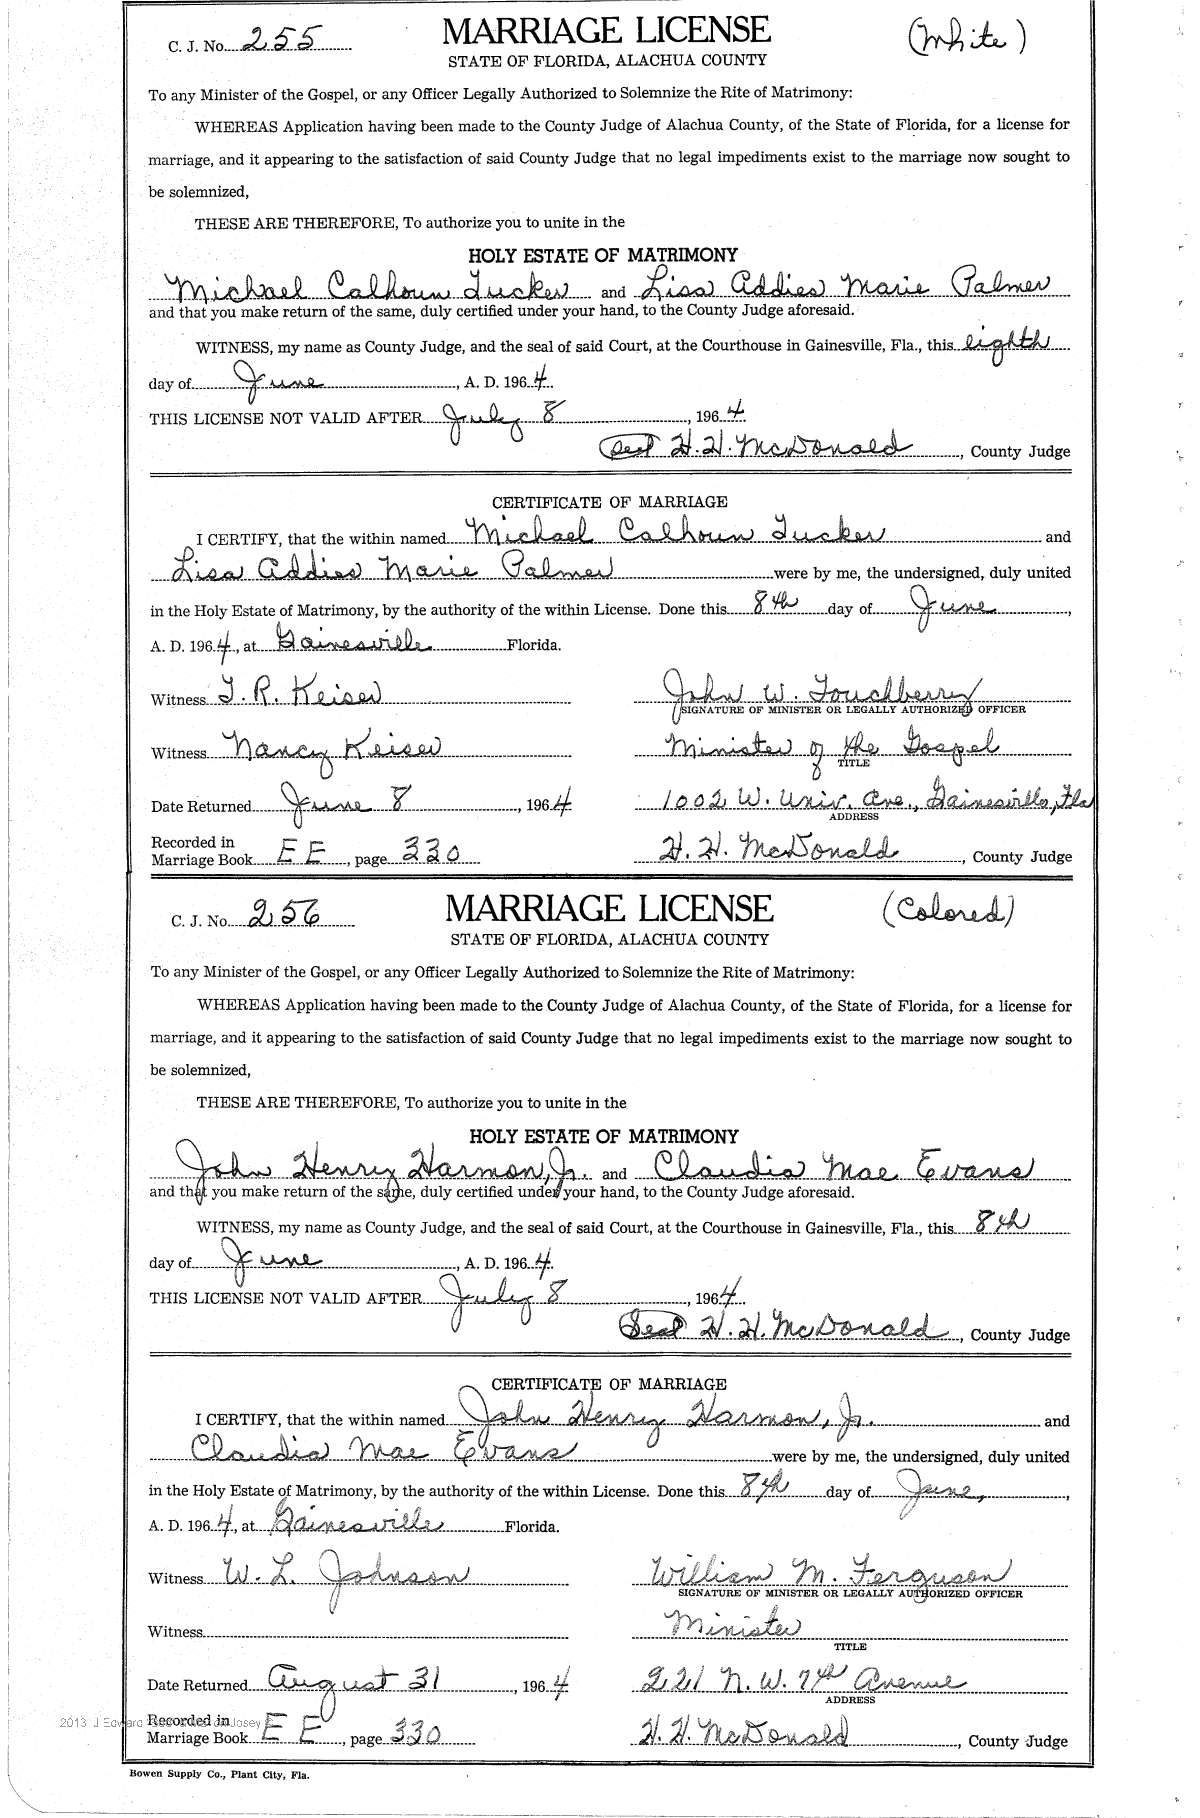 C. J. No. 255 MARRIAGE LICENSE (White)
STATE OF FLORIDA, ALACHUA COUNTY
To any Minister of the Gospel, or any Officer Legally Authorized to Solemnize the Rite of Matrimony:
WHEREAS Application having been made to the County Judge of Alachua County, of the State of Florida, for a license for
marriage, and it appearing to the satisfaction of said County Judge that no legal impediments exist to the marriage now sought to
be solemnized,
THESE ARE THEREFORE, To authorize you to unite in the
HOLY ESTATE OF MATRIMONY
Michael Calhoun Tucker and Lisa Addies Marie Palmer
and that you make return of the same, duly certified under your hand, to the County Judge aforesaid.
WITNESS, my name as County Judge, and the seal of said Court, at the Courthouse in Gainesville, Fla., this eighth
day of June, A. D. 1964.
THIS LICENSE NOT VALID AFTER July 8, 1964.
Seal H. H. McDonald, County Judge
CERTIFICATE OF MARRIAGE
I CERTIFY, that the within named Michael Calhoun Tucker and
Lisa Addies Marie Palmer were by me, the undersigned, duly united
in the Holy Estate of Matrimony, by the authority of the within License. Done this 8th day of June,
A. D. 1964, at Gainesville Florida.
Witness T. R. Keiser John W. Touchberry
SIGNATURE OF MINISTER OR LEGALLY AUTHORIZED OFFICER
Witness Nancy Keiser Minister of the Gospel
TITLE
Date Returned June 8, 1964 1002 W. Univ. Ave., Gainesville, Fla
ADDRESS
Recorded in
Marriage Book EE, page 330 H. H. McDonald, County Judge
C. J. No. 256 MARRIAGE LICENSE (Colored)
STATE OF FLORIDA, ALACHUA COUNTY
To any Minister of the Gospel, or any Officer Legally Authorized to Solemnize the Rite of Matrimony:
WHEREAS Application having been made to the County Judge of Alachua County, of the State of Florida, for a license for
marriage, and it appearing to the satisfaction of said County Judge that no legal impediments exist to the marriage now sought to
be solemnized,
THESE ARE THEREFORE, To authorize you to unite in the
HOLY ESTATE OF MATRIMONY
John Henry Harmon, Jr. and Claudia Mae Evans
and that you make return of the same, duly certified under your hand, to the County Judge aforesaid.
WITNESS, my name as County Judge, and the seal of said Court, at the Courthouse in Gainesville, Fla., this 8th
day of June, A. D. 1964.
THIS LICENSE NOT VALID AFTER July 8, 1964.
Seal H. H. McDonald, County Judge
CERTIFICATE OF MARRIAGE
I CERTIFY, that the within named John Henry Harmon, Jr. and
Claudia Mae Evans were by me, the undersigned, duly united
in the Holy Estate of Matrimony, by the authority of the within License. Done this 8th day of June,
A. D. 1964, at Gainesville Florida.
Witness W. L. Johnson William M. Ferguson
SIGNATURE OF MINISTER OR LEGALLY AUTHORIZED OFFICER
Witness Minister
TITLE
Date Returned August 31, 1964 221 N. W. 7th Avenue
ADDRESS
Recorded in
2013 J Edward Josey
Marriage Book EE, page 330 H. H. McDonald, County Judge
Bowen Supply Co., Plant City, Fla.